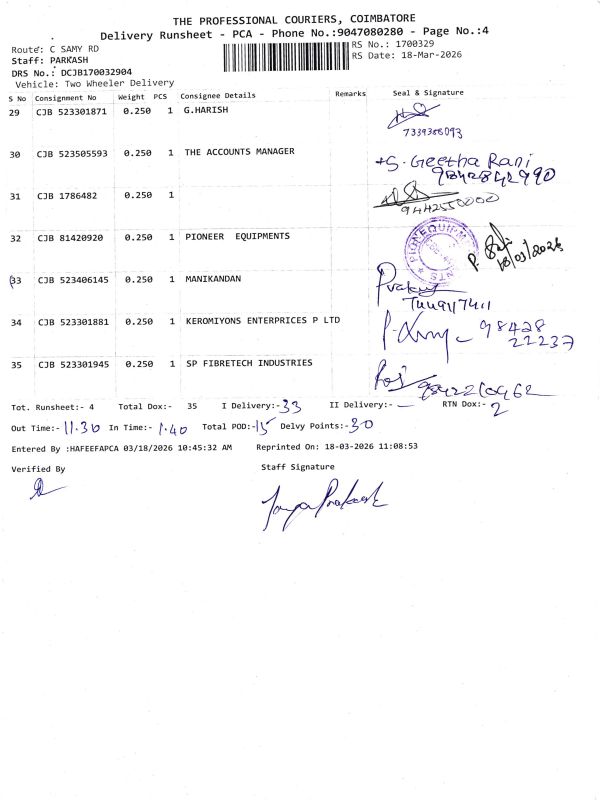 THE PROFESSIONAL COURIERS, COIMBATORE
Delivery Runsheet - PCA - Phone No.:9047080280 - Page No.:4
Route: C SAMY RD
RS No.: 1700329
Staff: PARKASH
RS Date: 18-Mar-2026
DRS No.: DCJB170032904
Vehicle: Two Wheeler Delivery
S No Consignment No Weight PCS Consignee Details Remarks Seal & Signature
29 CJB 523301871 0.250 1 G.HARISH
30 CJB 523505593 0.250 1 THE ACCOUNTS MANAGER S. Geetha Rani
9842842990
31 CJB 1786482 0.250 1
9442550000
32 CJB 81420920 0.250 1 PIONEER EQUIPMENTS 18/03/2026
33 CJB 523406145 0.250 1 MANIKANDAN
34 CJB 523301881 0.250 1 KEROMIYONS ENTERPRICES P LTD 98428
22237
35 CJB 523301945 0.250 1 SP FIBRETECH INDUSTRIES
Tot. Runsheet:- 4 Total Dox:- 35 I Delivery:- 33 II Delivery:- — RTN Dox:- 2
Out Time:- 11.30 In Time:- 1.40 Total POD:- 15 Delvy Points:- 30
Entered By :HAFEEFAPCA 03/18/2026 10:45:32 AM Reprinted On: 18-03-2026 11:08:53
Verified By Staff Signature